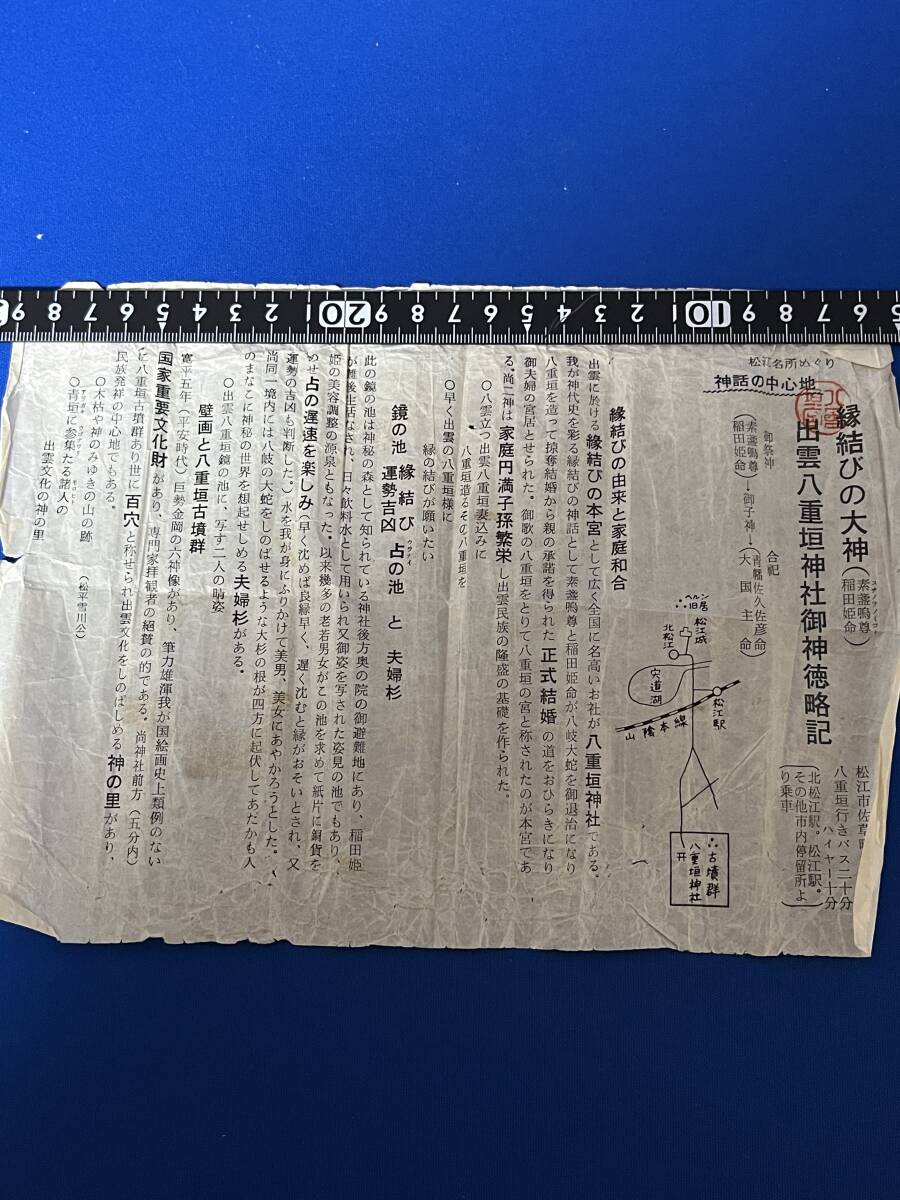 松江名所めぐり
神話の中心地
縁結びの大神(素盞嗚尊 稲田姫命)
出雲八重垣神社御神徳略記
松江市佐草町
八重垣行きバス二十分
ハイヤー十分
(北松江駅。松江駅。
その他市内停留所よ
り乗車)
御祭神
(素盞嗚尊
稲田姫命)→御子神→
合祀
(青幡佐久佐彦命
大国主命)
ヘルン旧居
松江城
北松江
宍道湖
松江駅
山陰本線
古墳群
八重垣神社
縁結びの由来と家庭和合
出雲に於ける縁結びの本宮として広く全国に名高いお社が八重垣神社である。
我が神代史を彩る縁結びの神話として素盞嗚尊と稲田姫命が八岐大蛇を御退治になり
八重垣を造って掠奪結婚から親の承諾を得られた正式結婚の道をおひらきになり
御夫婦の宮居とせられた。御歌の八重垣をとりて八重垣の宮と称されたのが本宮であ
る。尚二神は家庭円満子孫繁栄し出雲民族の隆盛の基礎を作られた。
○八雲立つ出雲八重垣妻込みに
八重垣造るその八重垣を
○早く出雲の八重垣様に
縁の結びが願いたい
鏡の池 縁結び 運勢吉凶 占の池 と 夫婦杉
ウラナイ
此の鏡の池は神秘の森として知られている神社後方奥の院の御避難地にあり、稲田姫
が難後生活なされ、日々飲料水として用いられ又御姿を写された姿見の池でもあり、
姫の美容調整の源泉ともなった。以来幾多の老若男女がこの池を求めて紙片に銅貨を
のせ占の遅速を楽しみ(早く沈めば良縁早く、遅く沈むと縁がおそいとされ、又
運勢の吉凶も判断した。)水を我が身にふりかけて美男、美女にあやかろうとした。
尚同一境内には八岐の大蛇をしのばせるような大杉の根が四方に起伏してあだかも人
のまなこに神秘の世界を想起せしめる夫婦杉がある。
○出雲八重垣鏡の池に、写す二人の晴姿
壁画と八重垣古墳群
寛平五年(平安時代)巨勢金岡の六神像があり、筆力雄渾我が国絵画史上類例のない
国家重要文化財があり、専門家拝観者の絶賛の的である。尚神社前方(五分内)
に八重垣古墳群あり世に百穴と称せられ出雲文化をしのばしめる神の里があり、
民族発祥の中心地でもある。
○木枯や神のみゆきの山の跡
(松平雪川公)
○青垣に参集たる諸人の
出雲文化の神の里